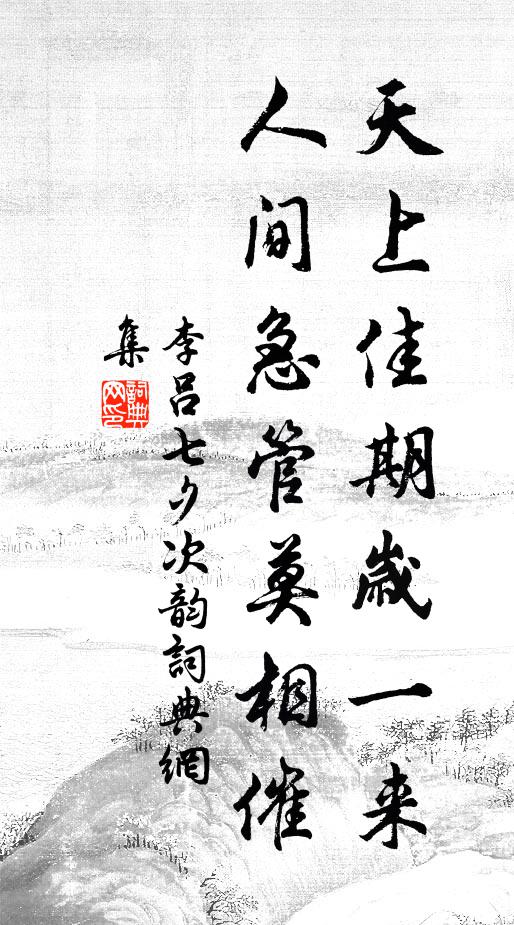 天上佳期歲一来
人间急管莫相催
李呂七夕次韵詞典網
集
詞典
网印